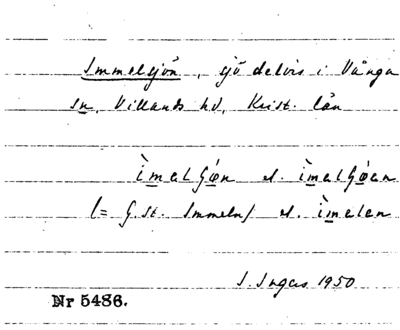 Immelsjön, sjö delvis i Vånga
sn, Villands hd, Krist. län
ìmelʃǿn el. ìmelʃǿen
(= G. st. Immeln) el. ìmelen
S. Ingers 1950
Nr 5486.